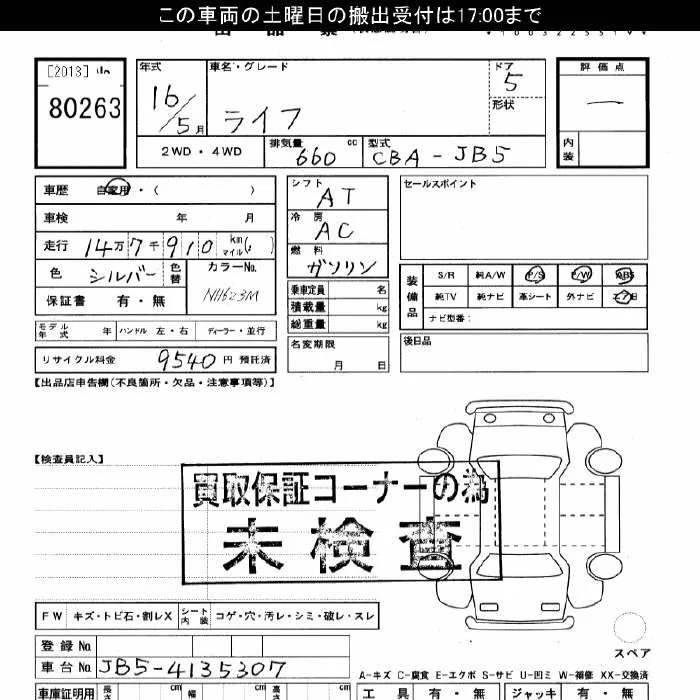 この車両の土曜日の搬出受付は17:00まで
[2013]
80263
年式
16/5月
車名・グレード
ライフ
ドア
5
形状
評価点
一
内装
2WD・4WD
排気量
660 cc
型式
CBA-JB5
車歴 自家用・( )
車検 年 月
走行 14万7千910 km マイル( )
色 シルバー 色替
カラーNo.
NH623M
保証書 有・無
モデル年式 年 ハンドル 左・右 ディーラー・並行
リサイクル料金 9540円 預託済
シフト
AT
冷房
AC
燃料
ガソリン
乗車定員 名
積載量 kg
総重量 kg
名変期限
月 日
セールスポイント
装備品
S/R 純A/W P/S P/W ABS
純TV 純ナビ 革シート 外ナビ エアB
ナビ型番:
後日品
【出品店申告欄(不良箇所・欠品・注意事項等)】
【検査員記入】
買取保証コーナーの為
未検査
FW キズ・トビ石・割レX シート内装 コゲ・穴・汚レ・シミ・破レ・スレ
スペア
登録No.
車台No. JB5-4135307
A-キズ C-腐食 E-エクボ S-サビ U-凹ミ W-補修 XX-交換済
車庫証明用 長さ cm 幅 cm 高さ cm
工具 有・無 ジャッキ 有・無